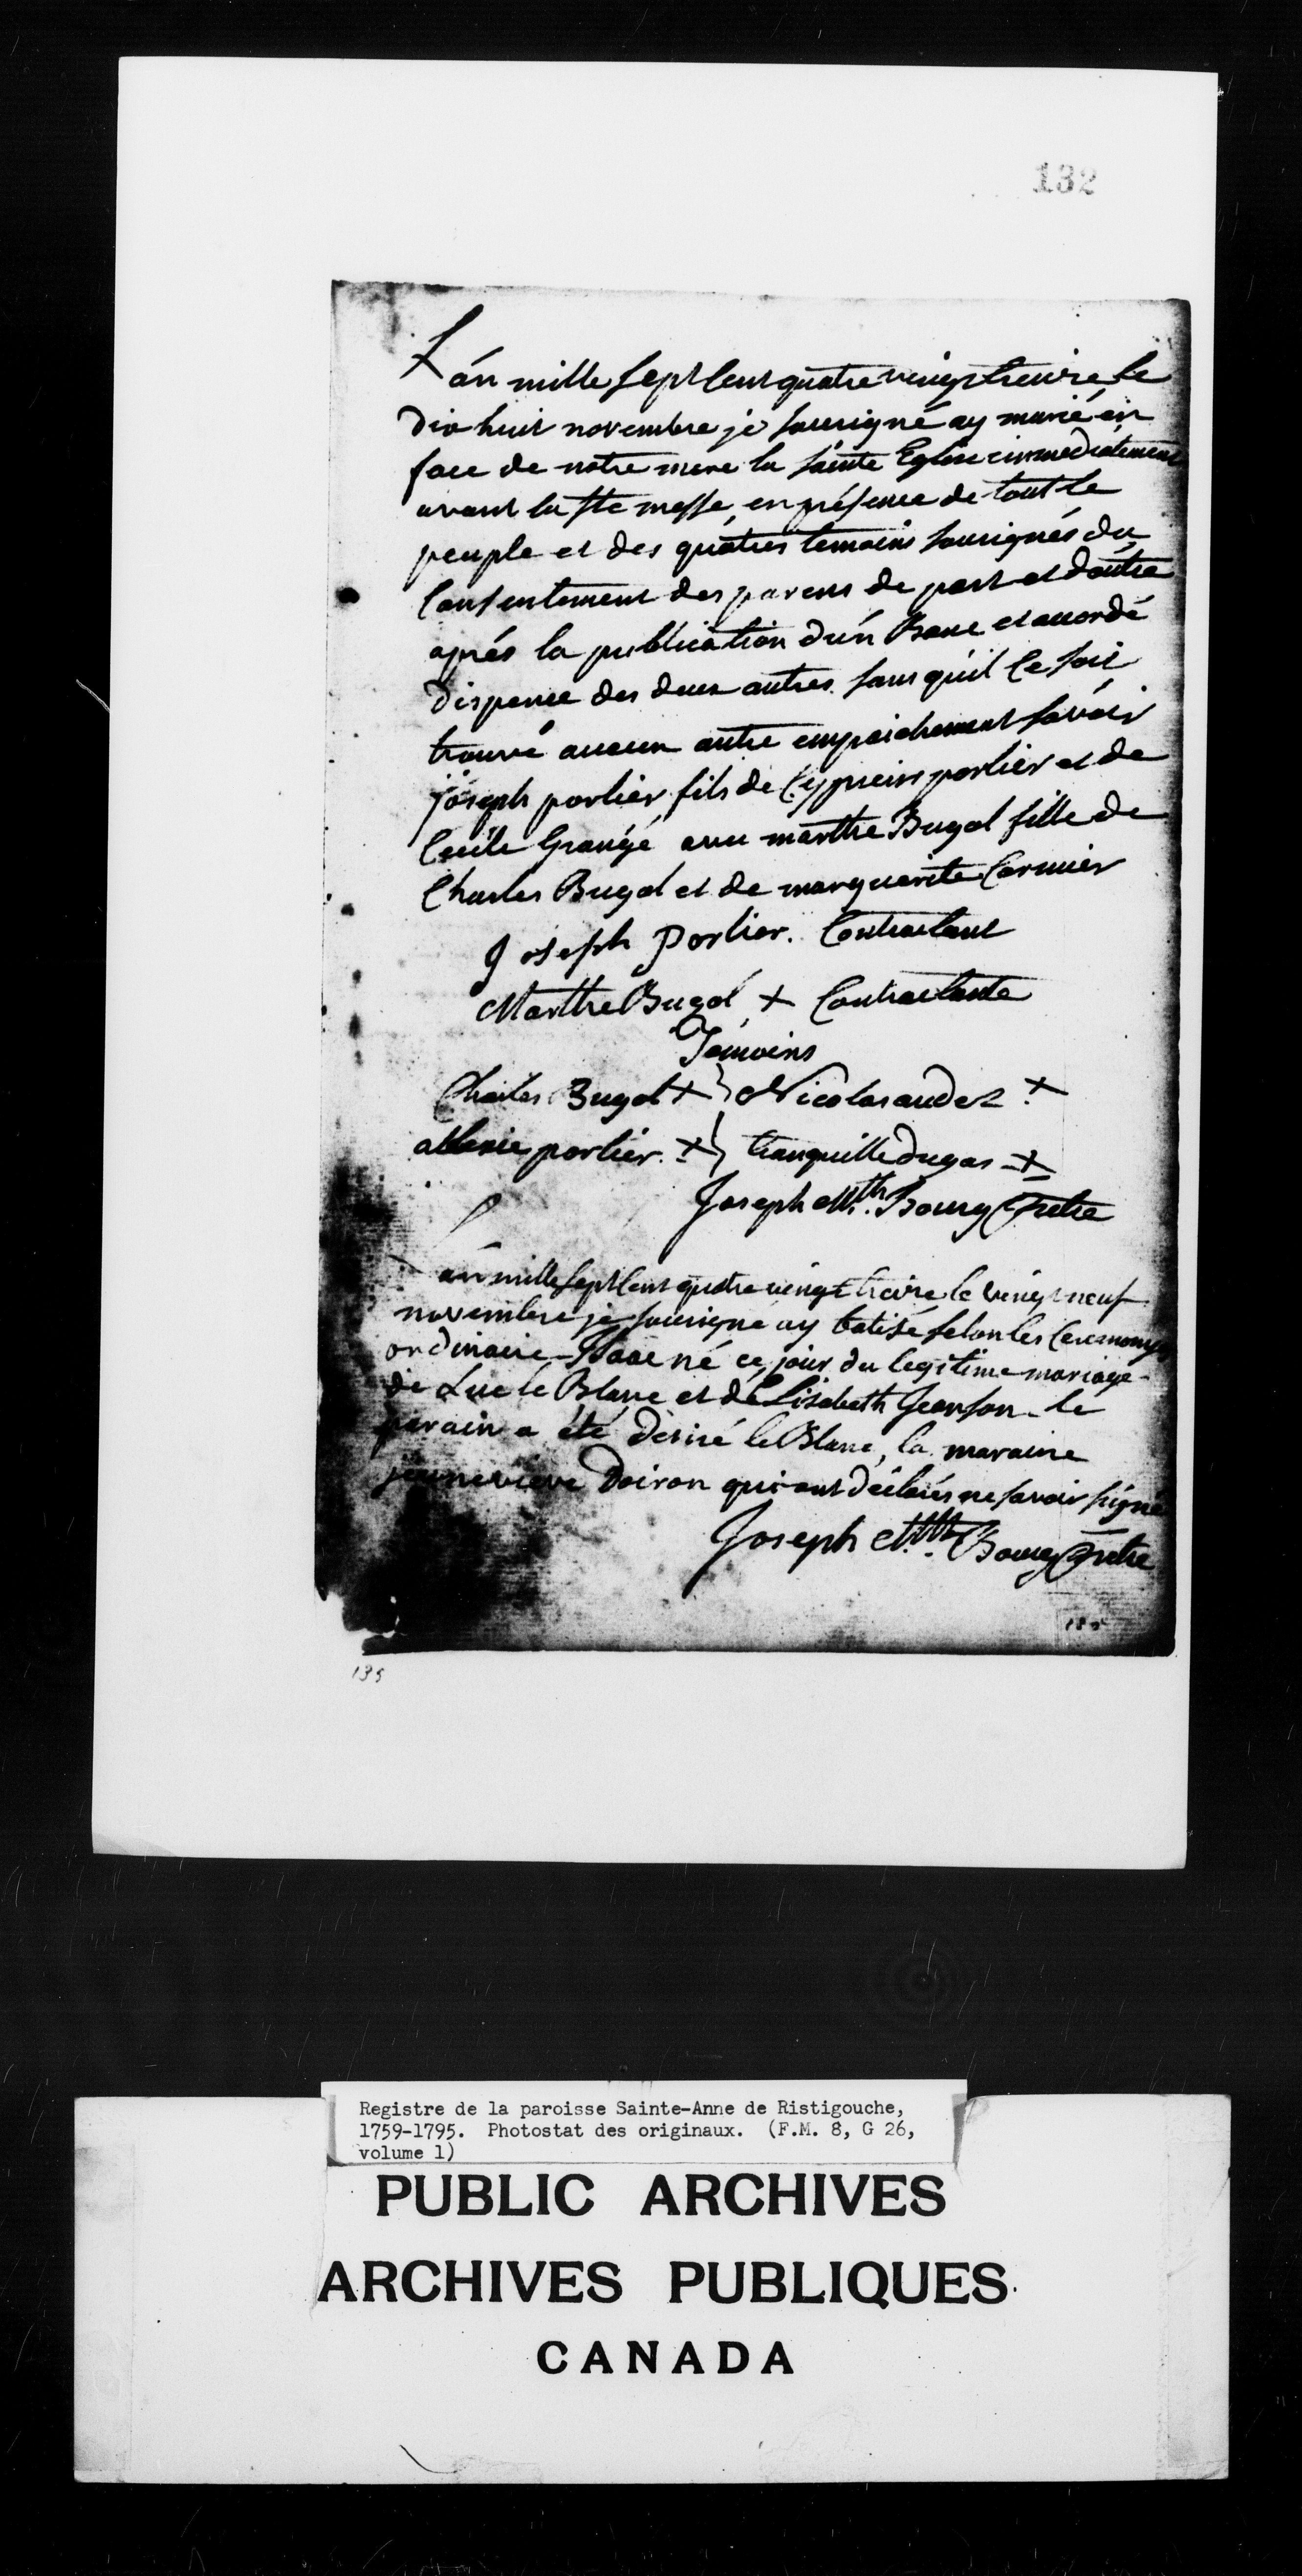 132
L'an mille sept cent quatre vingt treize le
dix huit novembre je sousigné ay marié en
face de notre mere la sainte Eglise immediatement
avant la ste messe, en présence de tout le
peuple et des quatres temoins sousignés du
consentement des parens de part et d'outre
aprés la publication d'un Banc et accordé
dispence des deux autres sans quil ce soit
trouvé aucun autre empaichement savoir
joseph porlier fils de Cyprien porlier et de
Cecile Grangé avec marthe Bugol fille de
Charles Bugol et de marguerite Cormier
Joseph porlier. Contractant
Marthe Bugol + Contractante
Témoins
Charles Bugol + } Nicolas audet +
porlier. + } tranquille dugas +
Joseph Mth. Bourg Prêtre
L'an mille sept cent quatre vingt treize le vingt neuf
novembre je sousigné ay batisé selon les ceremonys
ordinaire Isaac né ce jour du legitime mariage
de Luc le Blanc et de Elisabeth Jeanson le
parain a été désiré le Blanc, la maraine
jeunevieve Doiron qui ont déclarés ne savoir signé
Joseph Mth. Bourg Prêtre
135
Registre de la paroisse Sainte-Anne de Ristigouche,
1759-1795. Photostat des originaux. (F.M. 8, G 26,
volume 1)
PUBLIC ARCHIVES
ARCHIVES PUBLIQUES
CANADA